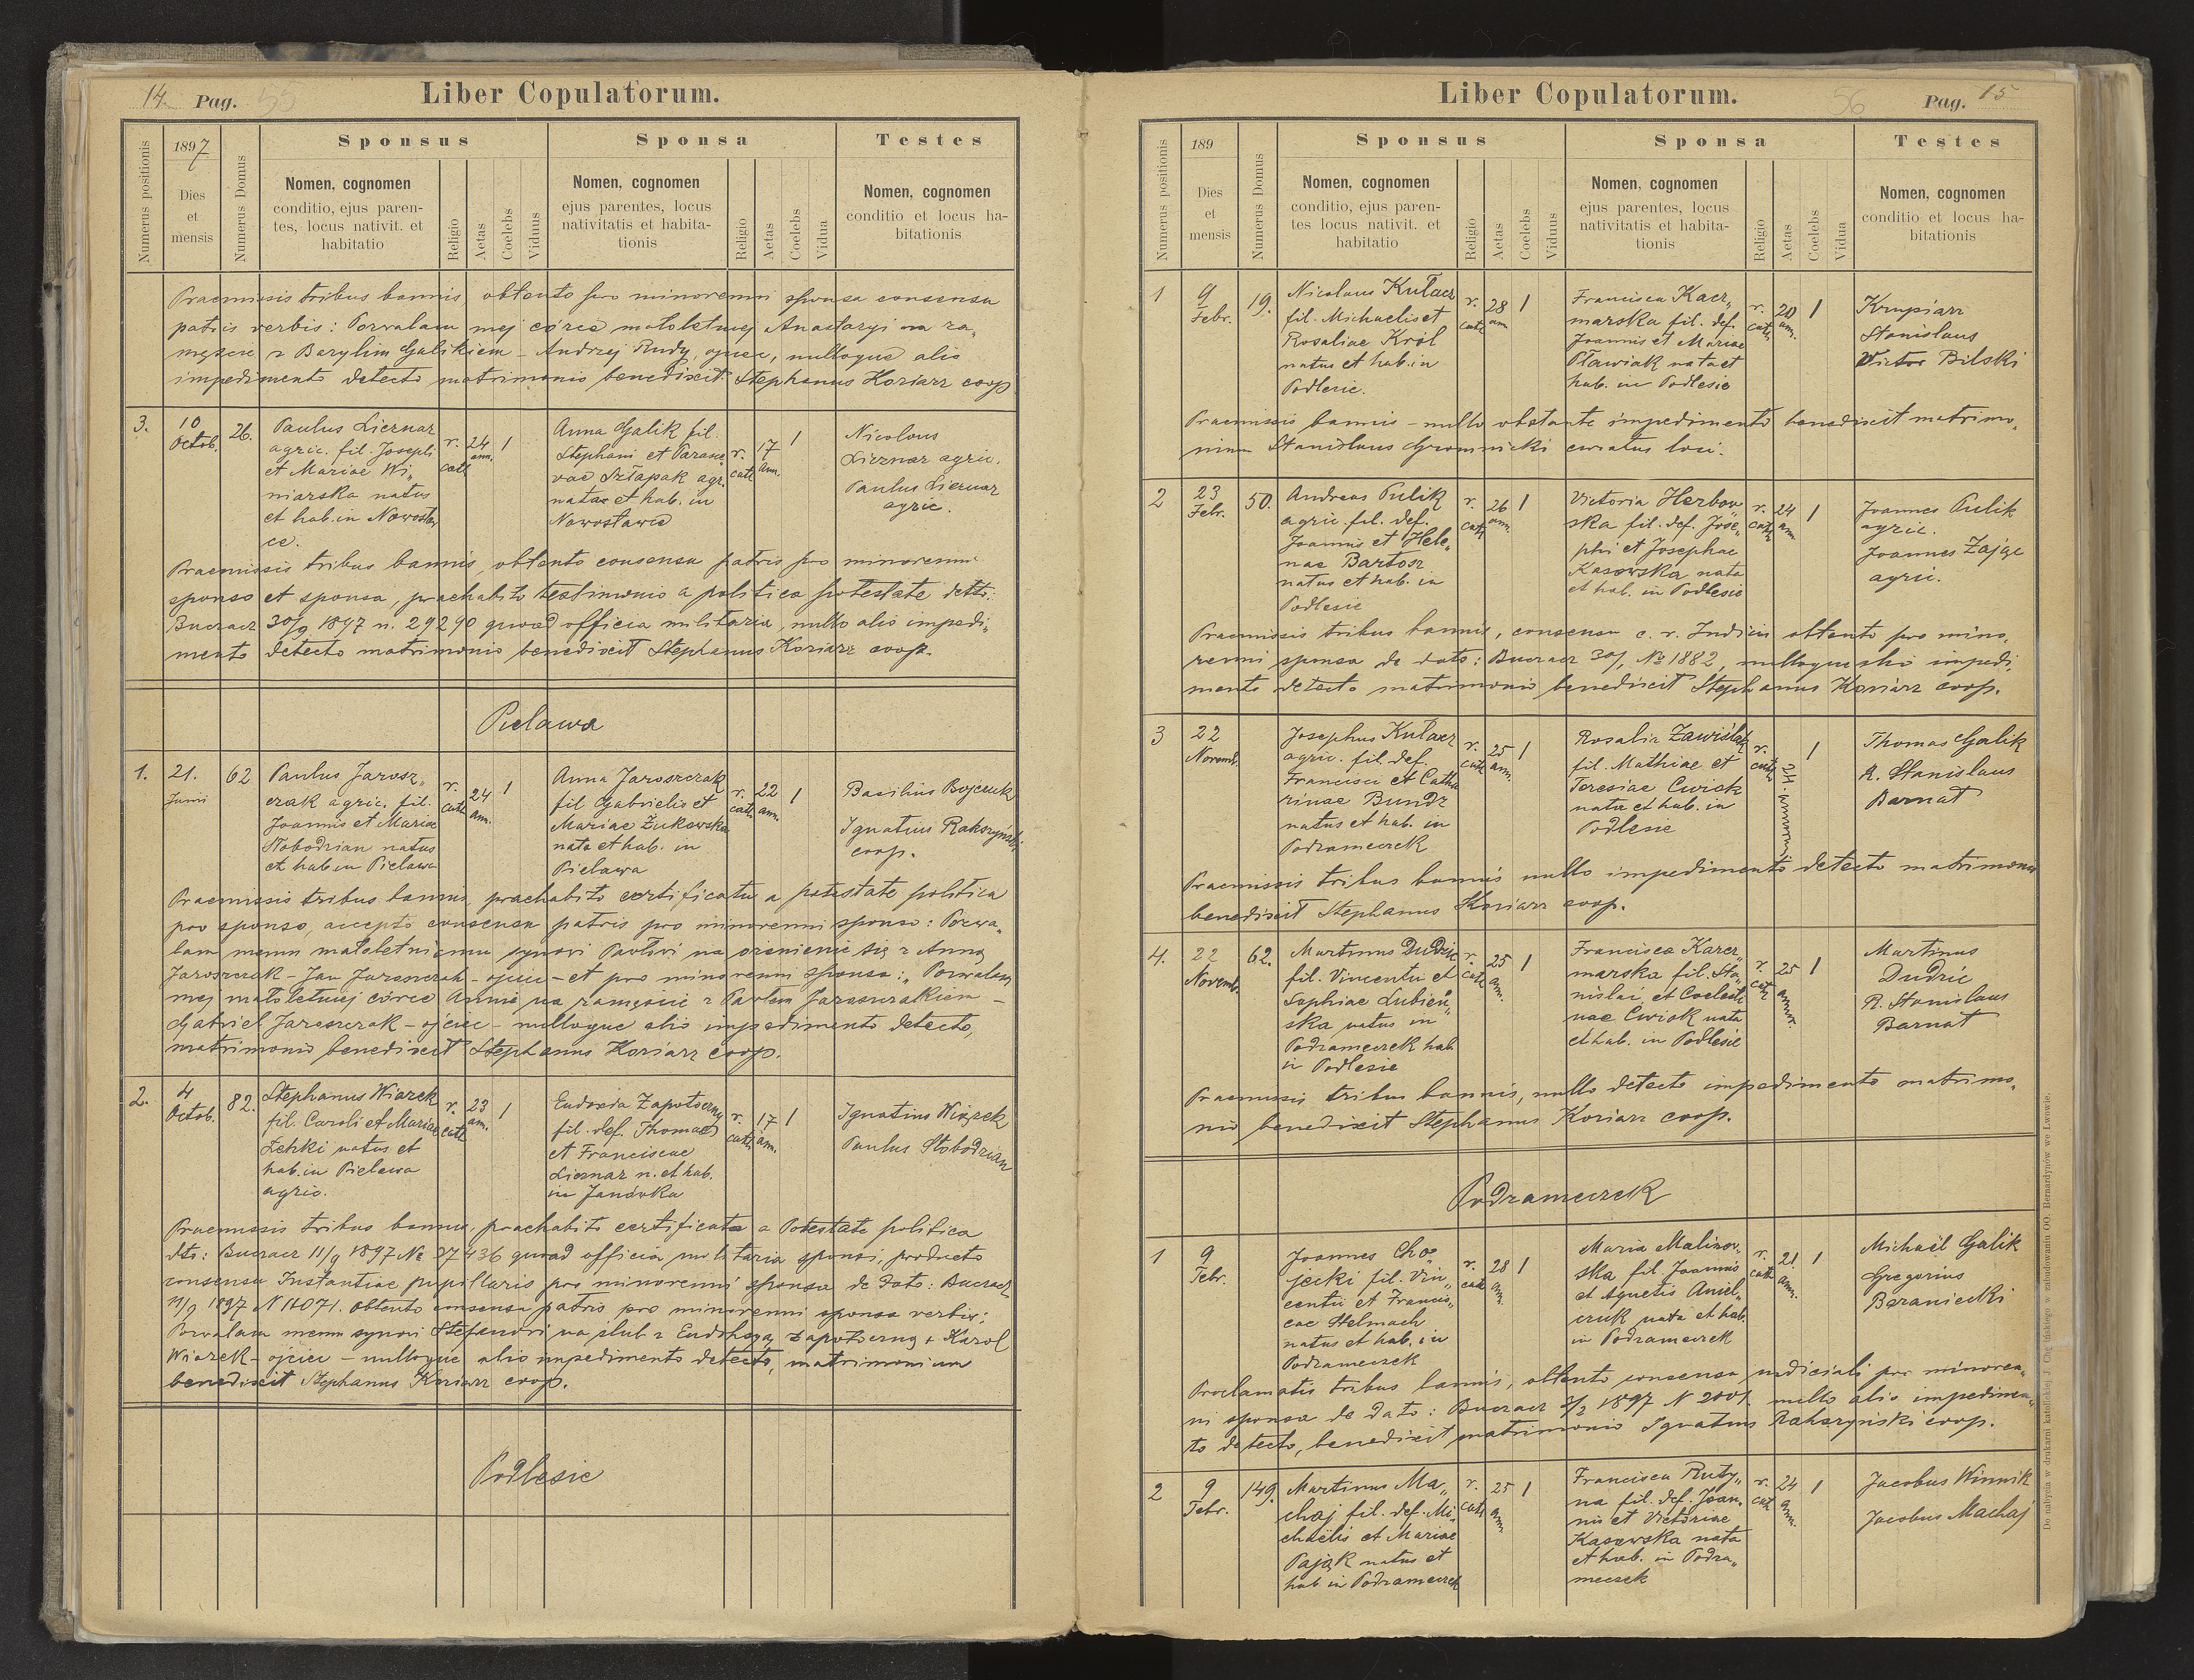 14. Pag. 55
Liber Copulatorum.
Numerus positionis
1897
Dies
et
mensis
Numerus Domus
Sponsus
Nomen, cognomen
conditio, ejus paren-
tes, locus nativit. et
habitatio
Religio
Aetas
Coelebs
Viduus
Sponsa
Nomen, cognomen
ejus parentes, locus
nativitatis et habita-
tionis
Religio
Aetas
Coelebs
Vidua
Testes
Nomen, cognomen
conditio et locus ha-
bitationis
Praemissis tribus bannis, obtento pro minorenni sponsa consensu
patris verbis: Pozwalam mej córce małoletniej Anastazyi na za„
męście z Bazylim Galikiem – Andrzej Rudy, ojciec, nulloque alio
impedimento detecto matrimonio benedixit Stephanus Koziarz coop.
3.
10
Octob.
26.
Paulus Liernar
agric. fil. Josephi
et Mariae Wi„
niarska natus
et hab. in Nowosław
ce.
r.
cath
24
ann.
1
Anna Galik fil.
Stephani et Parasce
vae Szłapak agr.
natae et hab. in
Nowosławce
r.
cath
17
ann.
1
Nicolaus
Liernar agric.
Paulus Liernar
agric.
Praemissis tribus bannis, obtento consensu patris pro minorenni
sponso et sponsa, praehabito testimonio a politica potestate detto:
Buczacz 30/9 1897 n. 29290 quoad officia militaria, nullo alio impedi„
mento detecto matrimonio benedixit Stephanus Koziarz coop.
Pielawa
1.
21.
Junii
62
Paulus Jarosz„
czak agric. fil.
Joannis et Mariae
Słobodzian natus
et hab in Pielawa
r.
cath
24
ann.
1
Anna Jaroszczak
fil Gabrielis et
Mariae Żukowska
nata et hab. in
Pielawa
r.
cath
22
ann.
1
Basilius Bojczuk
Ignatius Rakszyński
coop.
Praemissis tribus bannis, praehabito certificatu a potestate politica
pro sponso, accepto consensu patris pro minorenni sponso: Pozwa„
lam memu małoletniemu synowi Pawłowi na ożenienie się z Anną
Jaroszczak – Jan Jaroszczak – ojciec – et pro minorenni sponsa: „Pozwalam
mej małoletniej córce Annie na zamęście z Pawłem Jaroszczakiem –
Gabriel Jaroszczak – ojciec – nulloque alio impedimento detecto,
matrimonio benedixit Stephanus Koziarz coop.
2.
4
Octob.
82.
Stephanus Wiązek
fil. Caroli et Mariae
Zehki natus et
hab. in Pielawa
agric.
r.
cath
23
ann.
1
Eudoxia Zapotoczny
fil. def. Thomae
et Franciscae
Liernar n. et hab.
in Janówka
r.
cath
17
ann.
1
Ignatius Wiązek
Paulus Słobodzian
Praemissis tribus bannis, praehabito certificato a Potestate politica
dto: Buczacz 11/9 1897 № 27436 quoad officia militaria sponsi, producto
consensu Instantiae pupillaris pro minorenni sponsa de dato: Buczacz
11/9 1897 N 11071. obtento consensu patris pro minorenni sponso verbis:
Pozwalam memu synowi Stefanowi na ślub z Eudoksyą Zapotoczną + Karol
Wiązek – ojciec – nulloque alio impedimento detecto, matrimonium
benedixit Stephanus Koziarz coop.
Podlesie
Liber Copulatorum.
56 Pag. 15
Numerus positionis
189
Dies
et
mensis
Numerus Domus
Sponsus
Nomen, cognomen
conditio, ejus paren-
tes locus nativit. et
habitatio
Religio
Aetas
Coelebs
Viduus
Sponsa
Nomen, cognomen
ejus parentes, locus
nativitatis et habita-
tionis
Religio
Aetas
Coelebs
Vidua
Testes
Nomen, cognomen
conditio et locus ha-
bitationis
1
9
Febr.
19.
Nicolaus Kułacz
fil. Michaelis et
Rosaliae Król
natus et hab. in
Podlesie.
r.
cath
28
ann
1
Francisca Kacz„
marska fil. def.
Joannis et Mariae
Pławiak nata et
hab. in Podlesie
r.
cath
20
ann.
1
Krupiarz
Stanislaus
Victor Bilski
Praemissis bannis – nullo obstante impedimento benedixit matrimo„
nium Stanislaus Gromnicki curatus loci.
2
23
Febr.
50.
Andreas Pulik
agric. fil. def.
Joannis et Hele„
nae Bartosz
natus et hab. in
Podlesie
r.
cath
26
ann.
1
Victoria Herbow„
ska fil. def. Jose„
phi et Josephae
Kasowska nata
et hab. in Podlesie
r.
cath
24
ann
1
Joannes Pulik
agric.
Joannes Zając
agric.
Praemissis tribus bannis, consensu c. r. Judicii obtento pro mino„
renni sponsa de dato: Buczacz 30/1 № 1882, nulloque alio impedi„
mento detecto matrimonio benedixit Stephanus Koziarz coop.
3
22
Novemb.
Josephus Kułacz
agric. fil. def.
Francisci et Catha
rinae Bundz
natus et hab. in
Podzameczek
r.
cath
25
ann.
1
Rosalia Zawiślak
fil. Mathiae et
Teresiae Cwiok
nata et hab. in
Podlesie
r.
cath
24. annorum
1
Thomas Galik
R. Stanislaus
Barnat
Praemissis tribus bannis nullo impedimento detecto matrimonio
benedixit Stephanus Koziarz coop.
4.
22
Novemb.
62.
Martinus Dudzic
fil. Vincentii et
Sophiae Lubień„
ska natus in
Podzameczek hab
in Podlesie
r.
cath
25
ann.
1
Francisca Karcz„
marska fil. Sta„
nislai et Coelesti
nae Cwiok nata
et hab. in Podlesie
r.
cath
25
annor.
1
Martinus
Dudzic
R. Stanislaus
Barnat
Praemissis tribus bannis, nullo detecto impedimento matrimo„
nio benedixit Stephanus Koziarz coop.
Podzameczek
1
9
Febr.
Joannes Cho„
jecki fil. Vin„
centii et Francis„
cae Stelmach
natus et hab. in
Podzameczek
r.
cath
28
ann.
1
Maria Malinow„
ska fil. Joannis
et Agnetis Aniel„
czuk nata et hab.
in Podzameczek
r.
cath
21.
ann.
1
Michaël Galik
Gregorius
Baraniecki
Proclamatis tribus bannis, obtento consensu judiciali pro minoren„
ni sponsa de dato: Buczacz 3/2 1897 N 2001. nullo alio impedimen„
to detecto, benedixit matrimonio Ignatius Rakszyński coop.
2
9
Febr.
149.
Martinus Ma„
chaj fil. def. Mi„
chaëlis et Mariae
Pająk natus et
hab in Podzameczek
r.
cath
25
ann.
1
Francisca Ruty„
na fil. def. Joan„
nis et Victoriae
Kasowska nata
et hab. in Podza„
meczek
r.
cath
24
ann.
1
Jacobus Winnik
Jacobus Machaj
Do nabycia w drukarni katolickiej J. Chęcińskiego w zabudowaniu OO. Bernardynów we Lwowie.